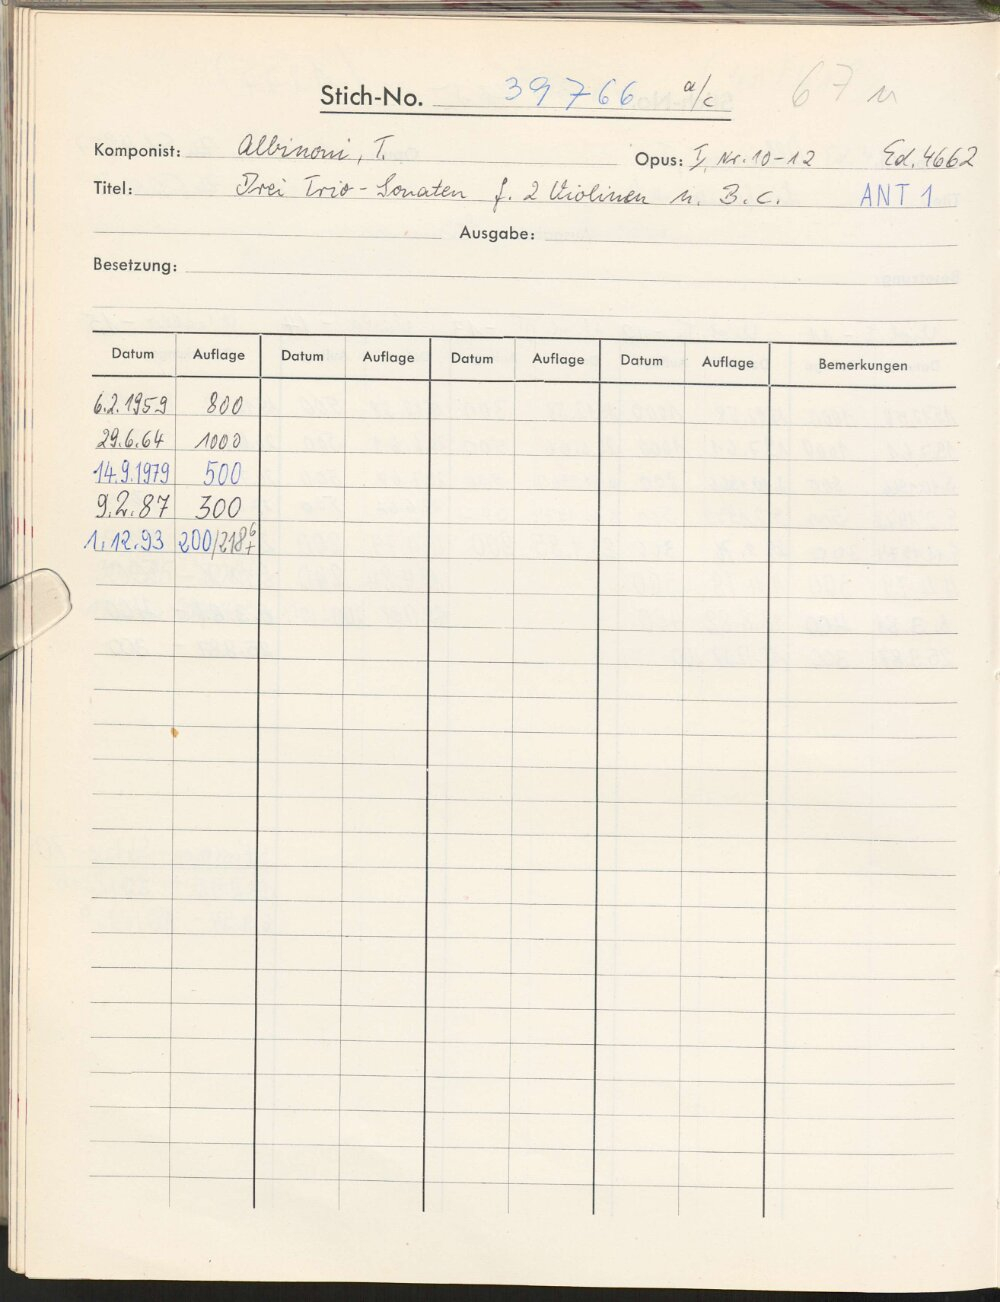 Stich-No. 39766 a/c 67 u
Komponist: Albinoni, T. Opus: I, Nr. 10-12 Ed. 4662
Titel: Drei Trio-Sonaten f. 2 Violinen u. B. c. ANT 1
Ausgabe:
Besetzung:
Datum Auflage Datum Auflage Datum Auflage Datum Auflage Bemerkungen
6.2.1959 800
29.6.64 1000
14.9.1979 500
9.2.87 300
1.12.93 200/218